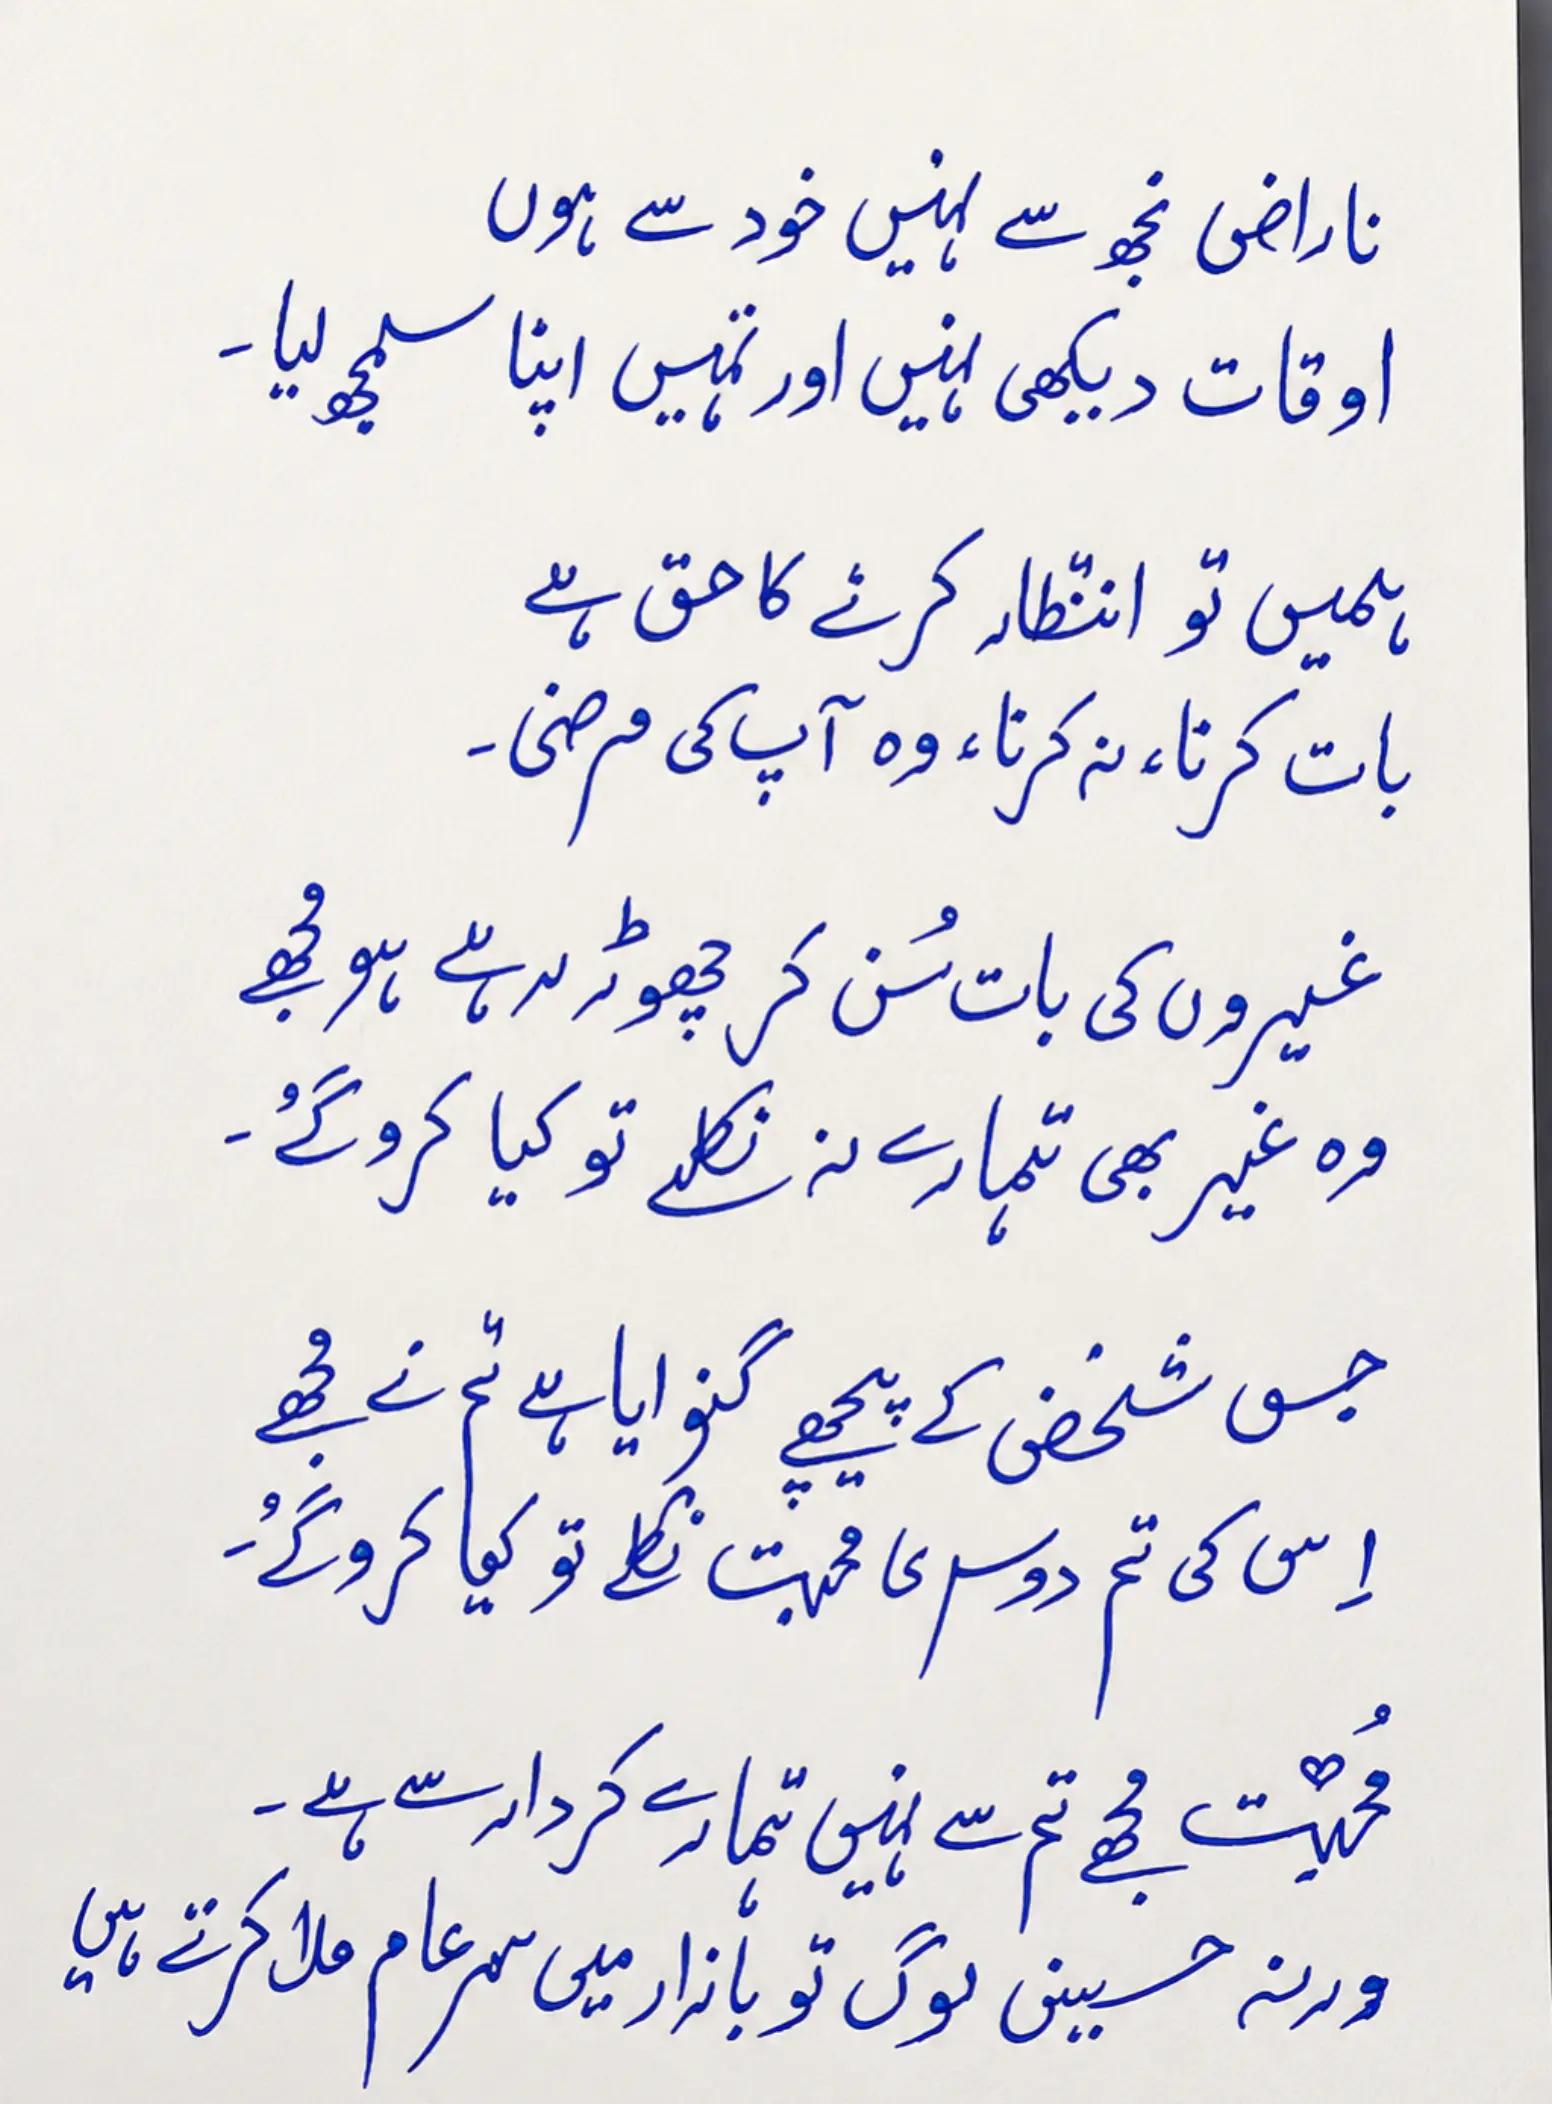 ناراض تجھ سے نہیں خود سے ہوں
اوقات دیکھی نہیں اور تمہیں اپنا سمجھ لیا۔
ہمیں تو انتظار کرنے کا حق ہے
بات کرنا، نہ کرنا، وہ آپ کی مرضی۔
غیروں کی بات سُن کر چھوڑ رہے ہو مُجھے
وہ غیر بھی تمہارے نہ نکلے تو کیا کرو گے۔
جس شخص کے پیچھے گنوایا ہے تم نے مُجھے
اِس کی تم دوسری محبت نکلے تو کیا کرو گے۔
مُحبّت مجھے تم سے نہیں تمہارے کردار سے ہے۔
ورنہ حسین لوگ تو بازار میں سرعام ملا کرتے ہیں